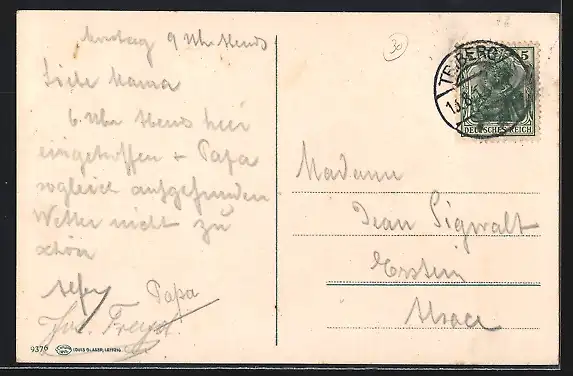 9 Uhr Abends
Liebe Mama
6 Uhr Abends hier
eingetroffen + Papa
sogleich aufgefunden
Wetter nicht zu
schön
Papa
Jos. Freys
9376 LOUIS GLASER, LEIPZIG
30
TRIBERG
5
DEUTSCHES REICH
Madame
Jean Sigwalt
Erstein
Alsace